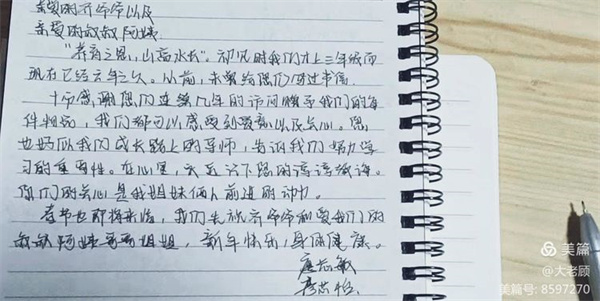 亲爱的齐爷爷以及
亲爱的叔叔阿姨
"养育之恩,山高水长"。初见时我们才上三年级而
现在已经六年之久。从前,未曾给您们写过书信。
十分感谢您们连续几年的访问赠予我们的每
件物品,我们都可以感受到爱意以及关心。您
也好似我们成长路上的导师,告诉我们努力学
习的重要性。在心里,永远六下您的谆谆教诲。
你们的关心是我姐妹俩人前进的动力。
春节也即将来临,我们先祝齐爷爷和爱我们的
叔叔阿姨哥哥姐姐,新年快乐!身体健康。
美篇
@大老顾
美篇号: 8597270